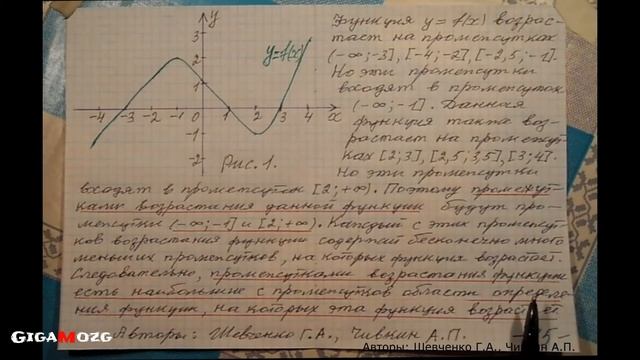 Функция y = f(x) возрас-
тает на промежутках
(-∞;-3], [-4;-2], [-2,5;-1].
Но эти промежутки
входят в промежуток
(-∞;-1]. Данная
функция также воз-
растает на промежут-
ках [2;3], [2,5;3,5], [3;4].
Но эти промежутки
входят в промежуток [2;+∞). Поэтому промежут-
ками возрастания данной функции будут про-
межутки (-∞;-1] и [2;+∞). Каждый с этих промежут-
ков возрастания функции содержит бесконечно много
меньших промежутков, на которых функция возрастает.
Следовательно, промежутками возрастания функции
есть наибольшие с промежутков области определе-
ния функции, на которых эта функция возрастает.
Авторы: Шевченко Г.А., Чивкин А.П.
y
3
2
1
y=f(x)
-4 -3 -2 -1 0 1 2 3 4 x
-1
-2
Рис. 1.
GIGAMOZG
Авторы: Шевченко Г.А., Чивкин А.П.